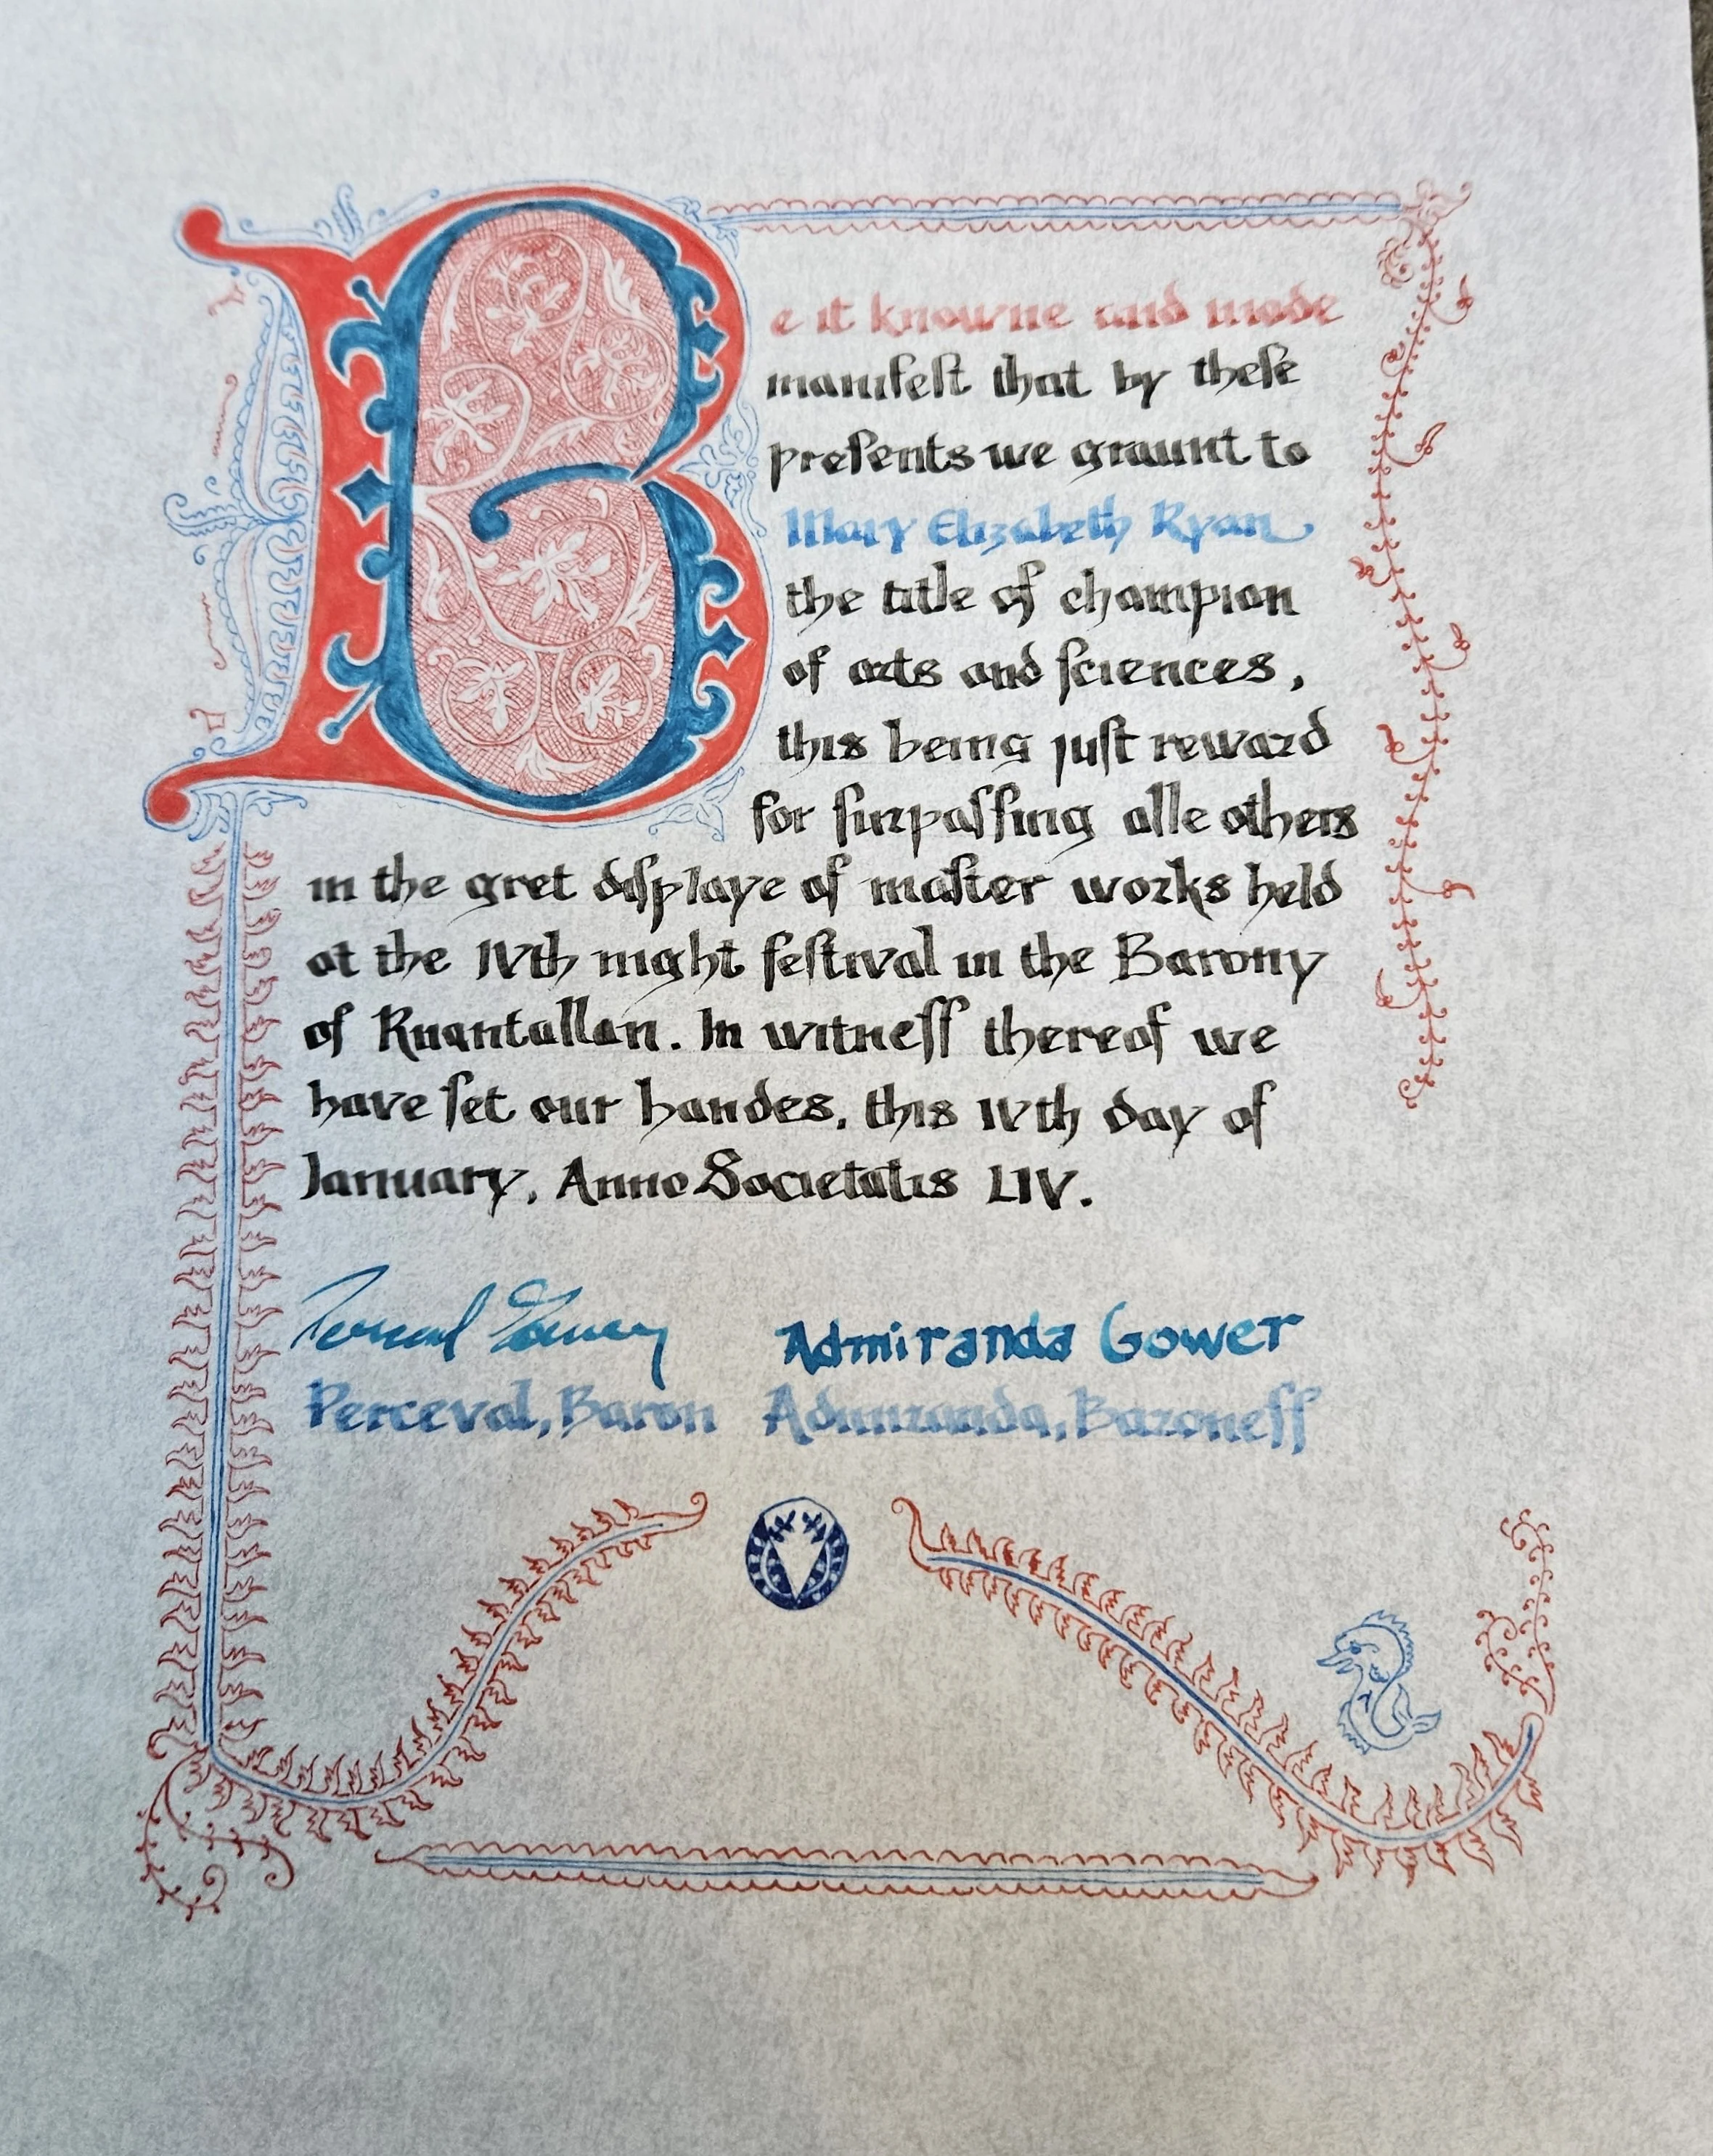 Be it knowne and made
manifeſt that by theſe
preſents we graunt to
Mary Elizabeth Ryan
the title of champion
of arts and ſciences,
this being juſt reward
for ſurpaſſing alle others
in the gret diſplaye of maſter works held
at the IVth night feſtival in the Barony
of Ruantallan. In witneſſ thereof we
have ſet our handes, this IVth day of
January, Anno Societatis LIV.
Admiranda Gower
Perceval, Baron Admiranda, Baroneſſ